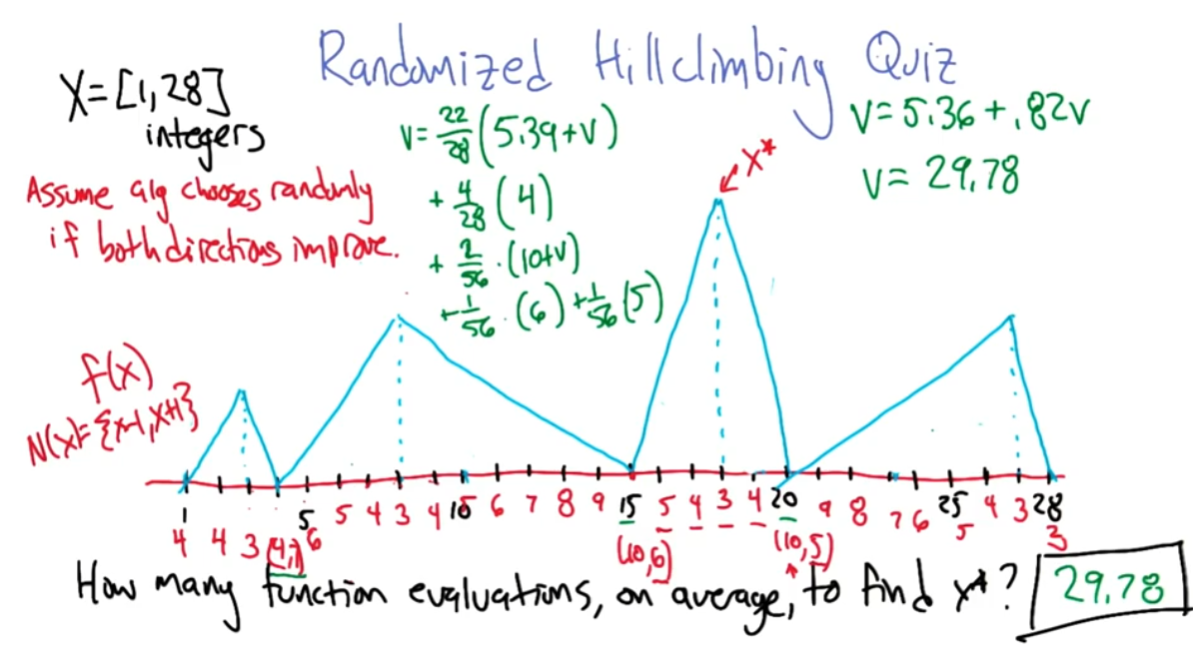 Randomized Hillclimbing Quiz
X=[1,28]
integers
Assume alg chooses randomly
if both directions improve.
v=22/28(5.39+v)
+4/28(4)
+2/56·(10+v)
+1/56·(6)+1/56(5)
v=5.36+.82v
v=29.78
x*
f(x)
N(x)={x-1,x+1}
1 5 5 4 3 4 10 6 7 8 9 15 5 4 3 4 20 9 8 7 6 25 4 3 28
4 4 3 (4,7) 6 (10,6) (10,5) 5 3
How many function evaluations, on average, to find x*? 29.78